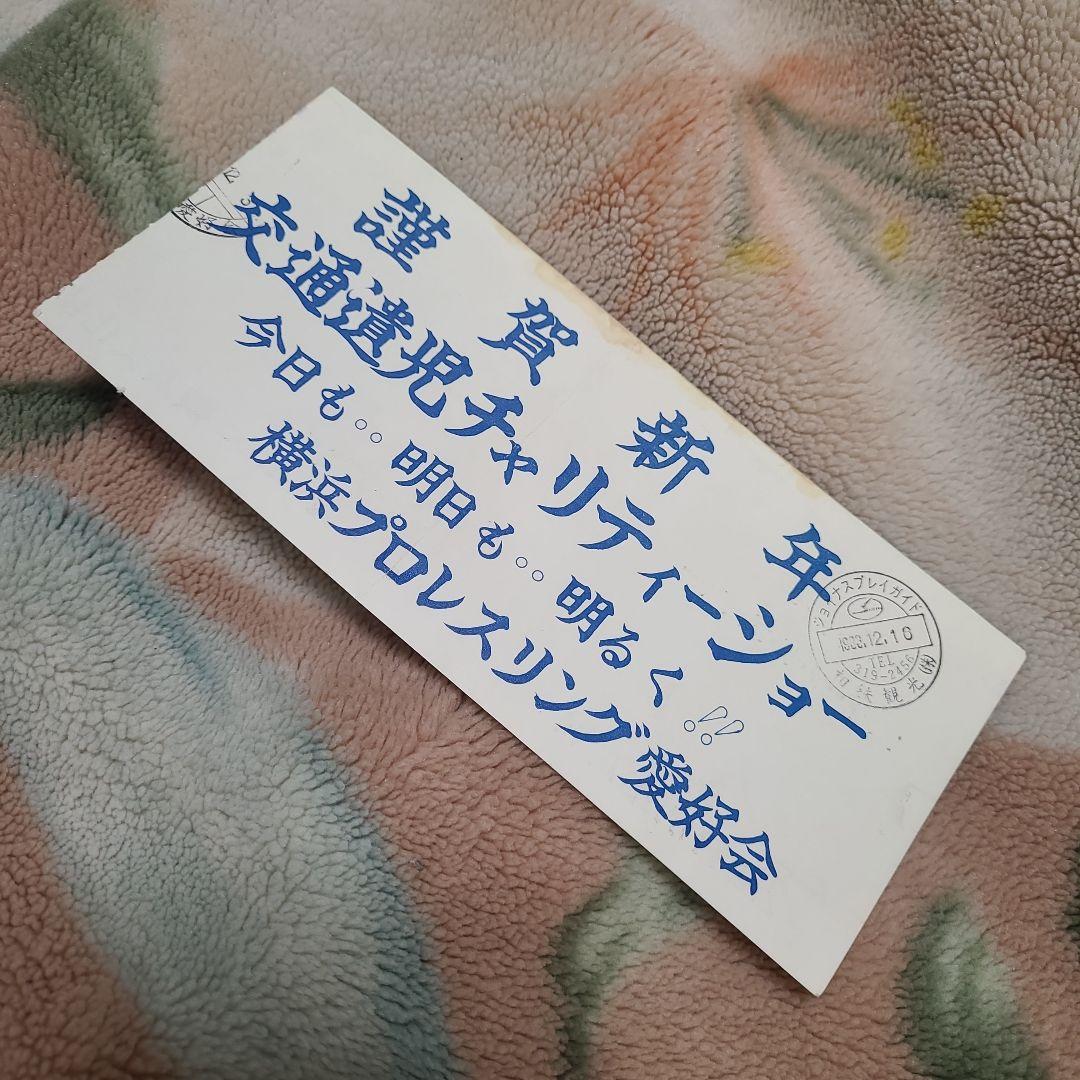 謹賀新年
交通遺児チャリティーショー
今日も‥明日も‥明るく!!
横浜プロレスリング愛好会
ジョイナスプレイガイド
12.16
TEL
319-2456
観光㈱
12
愛好